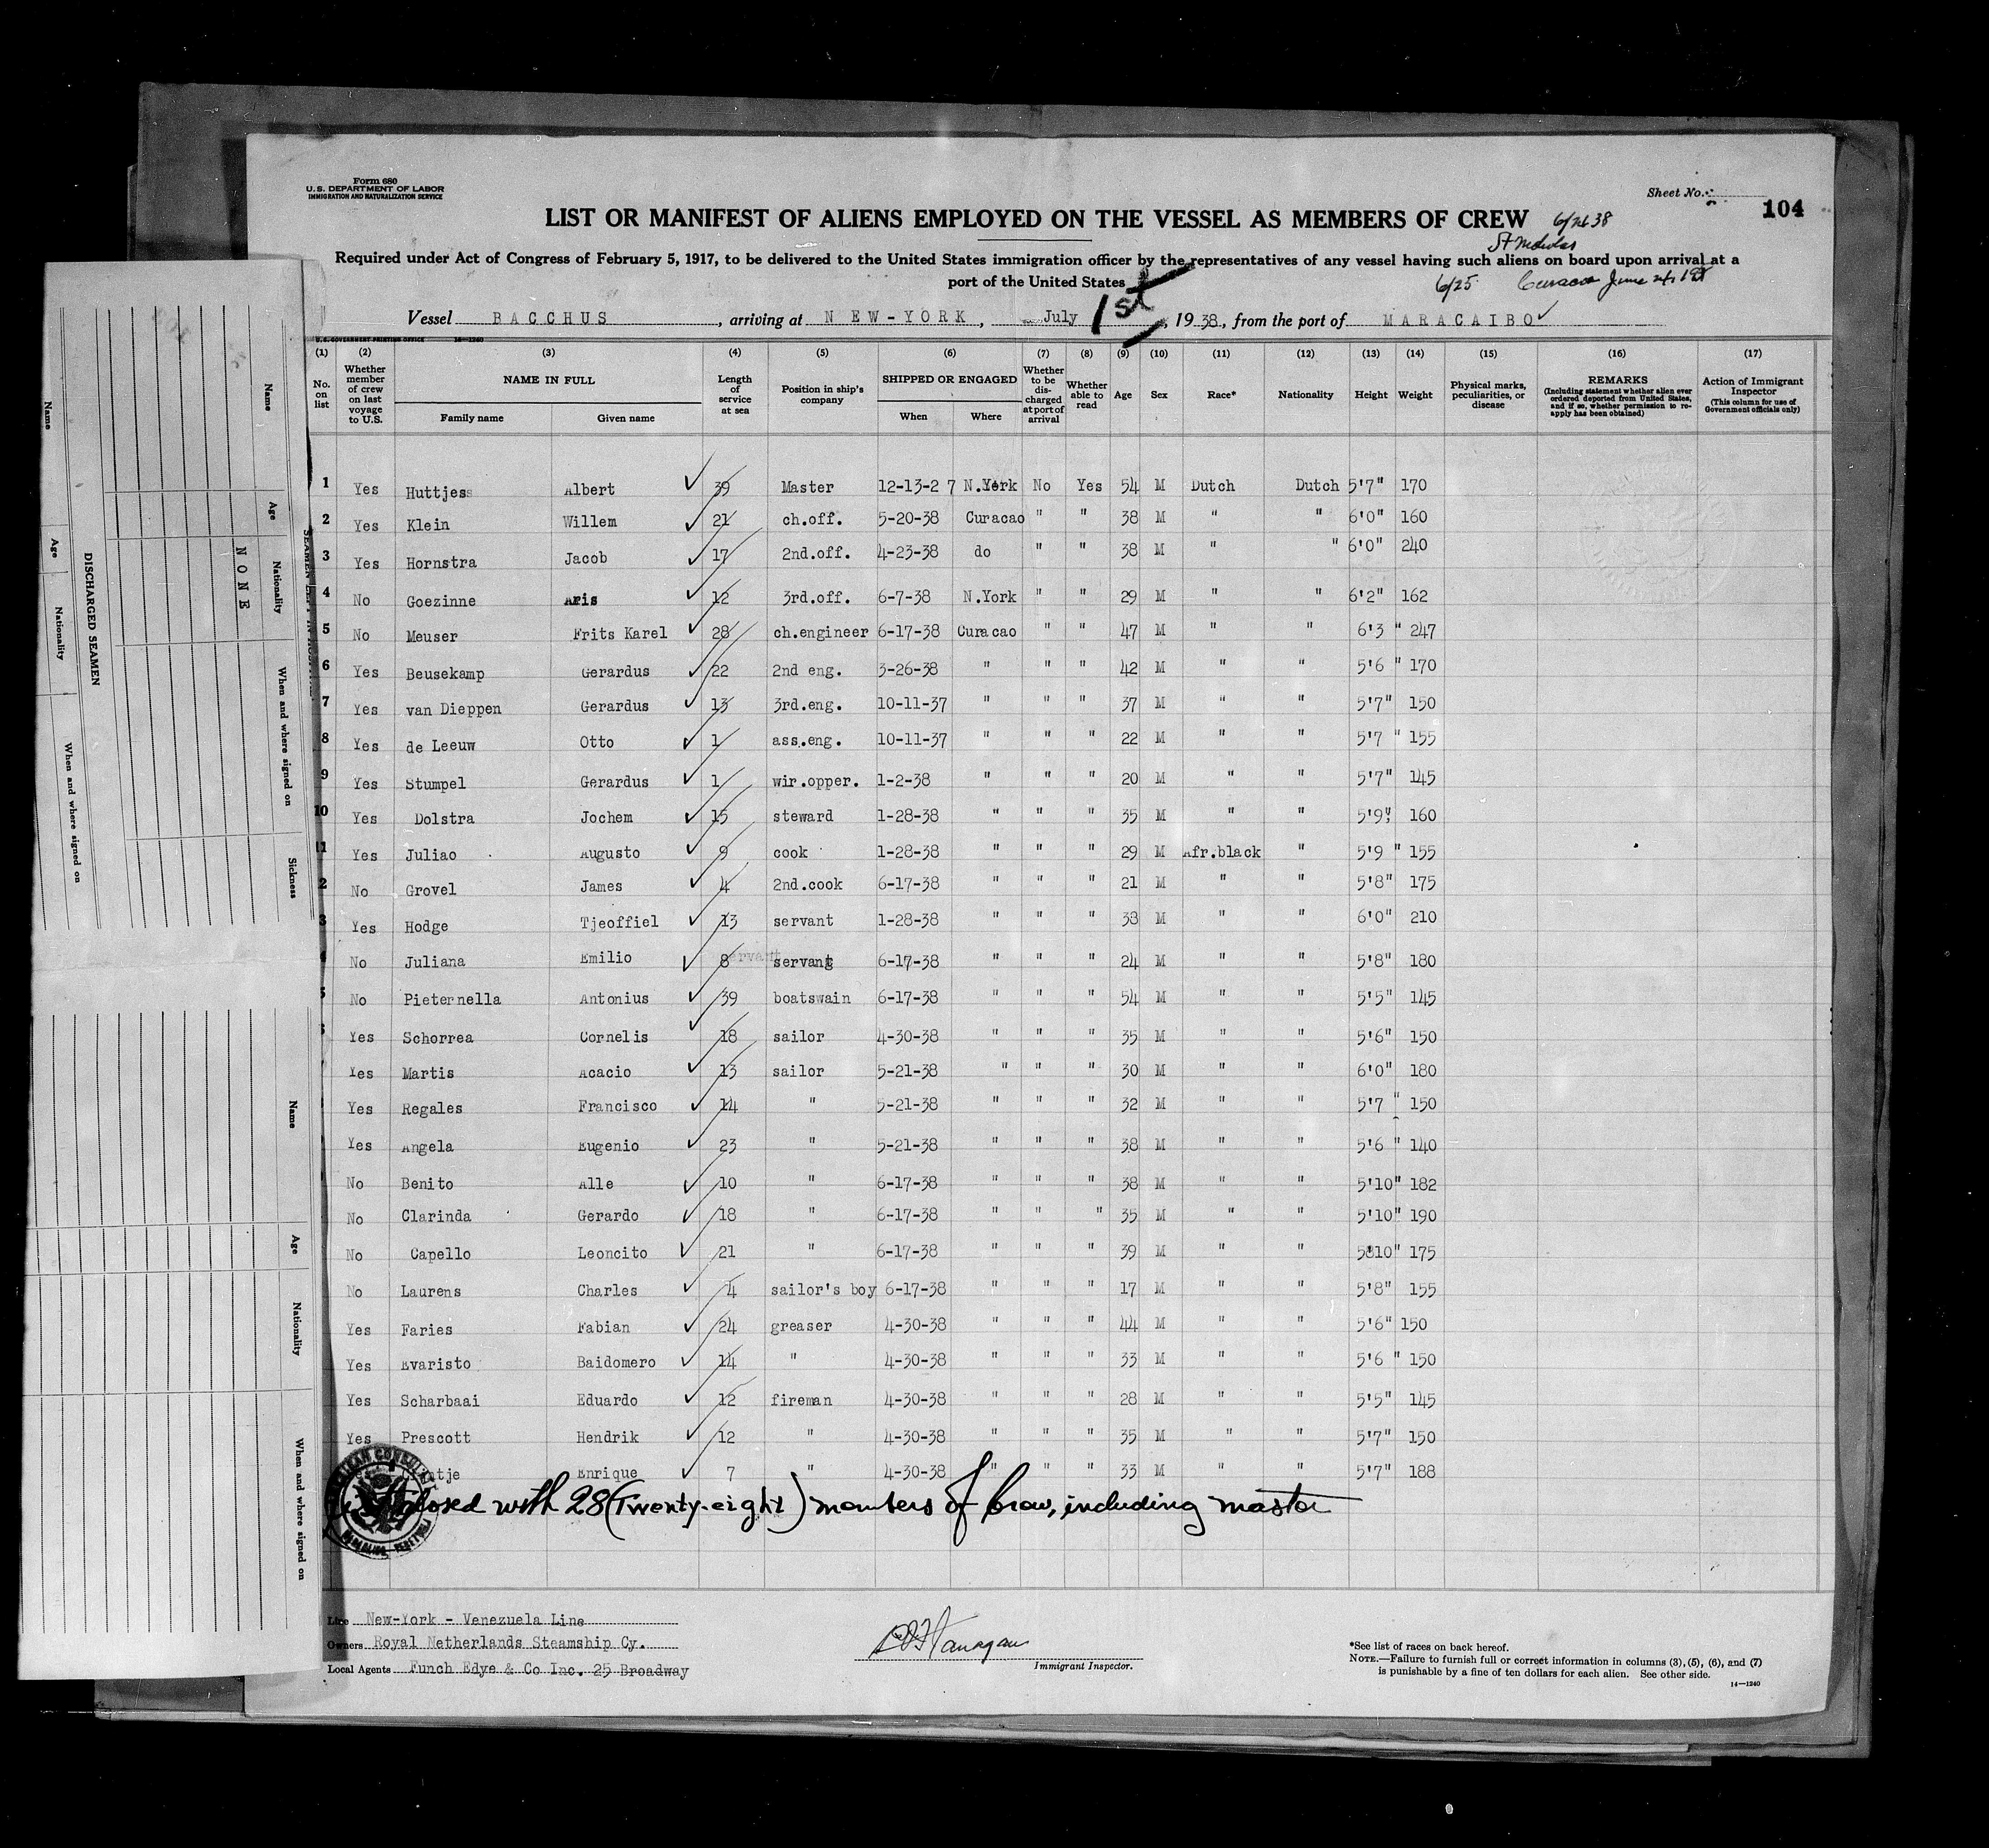 Form 680
U. S. DEPARTMENT OF LABOR
IMMIGRATION AND NATURALIZATION SERVICE
Sheet No.
104
LIST OR MANIFEST OF ALIENS EMPLOYED ON THE VESSEL AS MEMBERS OF CREW
Required under Act of Congress of February 5, 1917, to be delivered to the United States immigration officer by the representatives of any vessel having such aliens on board upon arrival at a
port of the United States
6/25 Curacao June 24,
Vessel BACCHUS, arriving at NEW-YORK, July 1st, 1938, from the port of MARACAIBO
U.S. GOVERNMENT PRINTING OFFICE 14—1240
(1) (2) (3) (4) (5) (6) (7) (8) (9) (10) (11) (12) (13) (14) (15) (16) (17)
No. on list
Whether member of crew on last voyage to U.S.
NAME IN FULL
Family name
Given name
Length of service at sea
Position in ship's company
SHIPPED OR ENGAGED
When
Where
Whether to be discharged at port of arrival
Whether able to read
Age
Sex
Race*
Nationality
Height
Weight
Physical marks, peculiarities, or disease
REMARKS
(Including statement whether alien ever ordered deported from United States, and if so, whether permission to reapply has been obtained)
Action of Immigrant Inspector
(This column for use of Government officials only)
1 Yes Huttjess Albert 39 Master 12-13-2 7 N.York No Yes 54 M Dutch Dutch 5'7" 170
2 Yes Klein Willem 21 ch.off. 5-20-38 Curacao " " 38 M " " 6'0" 160
3 Yes Hornstra Jacob 17 2nd.off. 4-23-38 do " " 38 M " " 6'0" 240
4 No Goezinne Aris 12 3rd.off. 6-7-38 N.York " " 29 M " " 6'2" 162
5 No Meuser Frits Karel 28 ch.engineer 6-17-38 Curacao " " 47 M " " 6'3 " 247
6 Yes Beusekamp Gerardus 22 2nd eng. 3-26-38 " " " 42 M " " 5'6 " 170
7 Yes van Dieppen Gerardus 13 3rd.eng. 10-11-37 " " " 37 M " " 5'7" 150
8 Yes de Leeuw Otto 1 ass.eng. 10-11-37 " " " 22 M " " 5'7 " 155
9 Yes Stumpel Gerardus 1 wir.opper. 1-2-38 " " " 20 M " " 5'7" 145
10 Yes Dolstra Jochem 15 steward 1-28-38 " " " 35 M " " 5'9" 160
11 Yes Juliao Augusto 9 cook 1-28-38 " " " 29 M Afr.black " 5'9 " 155
2 No Grovel James 4 2nd.cook 6-17-38 " " " 21 M " " 5'8" 175
3 Yes Hodge Tjeoffiel 13 servant 1-28-38 " " " 38 M " " 6'0" 210
4 No Juliana Emilio 8 servant 6-17-38 " " " 24 M " " 5'8" 180
5 No Pieternella Antonius 39 boatswain 6-17-38 " " " 54 M " " 5'5" 145
Yes Schorrea Cornelis 18 sailor 4-30-38 " " " 35 M " " 5'6" 150
Yes Martis Acacio 13 sailor 5-21-38 " " " 30 M " " 6'0" 180
Yes Regales Francisco 14 " 5-21-38 " " " 32 M " " 5'7 " 150
Yes Angela Eugenio 23 " 5-21-38 " " " 38 M " " 5'6 " 140
No Benito Alle 10 " 6-17-38 " " " 38 M " " 5'10" 182
No Clarinda Gerardo 18 " 6-17-38 " " " 35 M " " 5'10" 190
No Capello Leoncito 21 " 6-17-38 " " " 39 M " " 5'10" 175
No Laurens Charles 4 sailor's boy 6-17-38 " " " 17 M " " 5'8" 155
Yes Faries Fabian 24 greaser 4-30-38 " " " 44 M " " 5'6" 150
Yes Evaristo Baidomero 14 " 4-30-38 " " " 33 M " " 5'6 " 150
Yes Scharbaai Eduardo 12 fireman 4-30-38 " " " 28 M " " 5'5" 145
Yes Prescott Hendrik 12 " 4-30-38 " " " 35 M " " 5'7" 150
Enrique 7 " 4-30-38 " " " 33 M " " 5'7" 188
Closed with 28 (Twenty-eight) members of Crew, including master
Line New-York - Venezuela Line
Owners Royal Netherlands Steamship Cy.
Local Agents Funch Edye & Co Inc. 25 Broadway
Immigrant Inspector.
*See list of races on back hereof.
NOTE.—Failure to furnish full or correct information in columns (3), (5), (6), and (7)
is punishable by a fine of ten dollars for each alien. See other side.
14—1240
Name Age Nationality When and where signed on Sickness
NONE
DISCHARGED SEAMEN
Name Age Nationality When and where signed on
Name Age Nationality When and where signed on